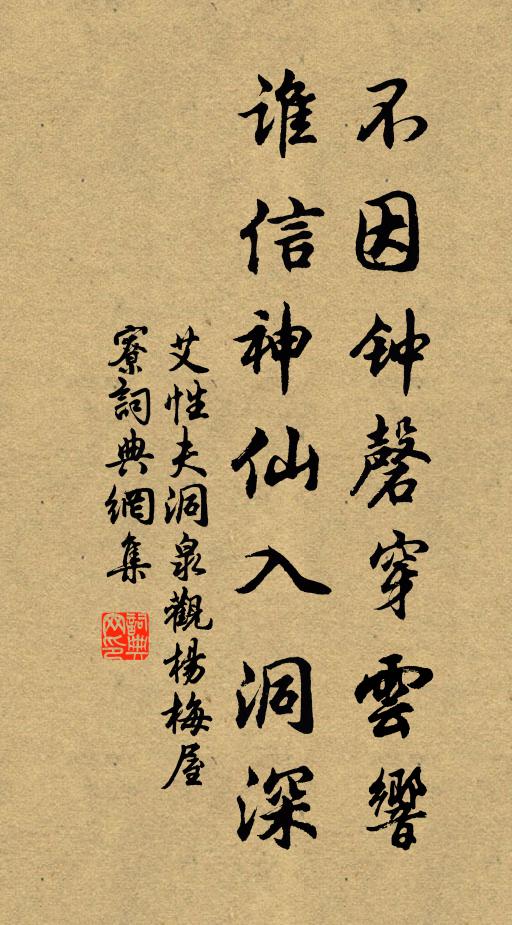 不因钟磬穿雲響
谁信神仙入洞深
艾性夫洞泉觀楊梅屋
寮詞典網集
詞典網印